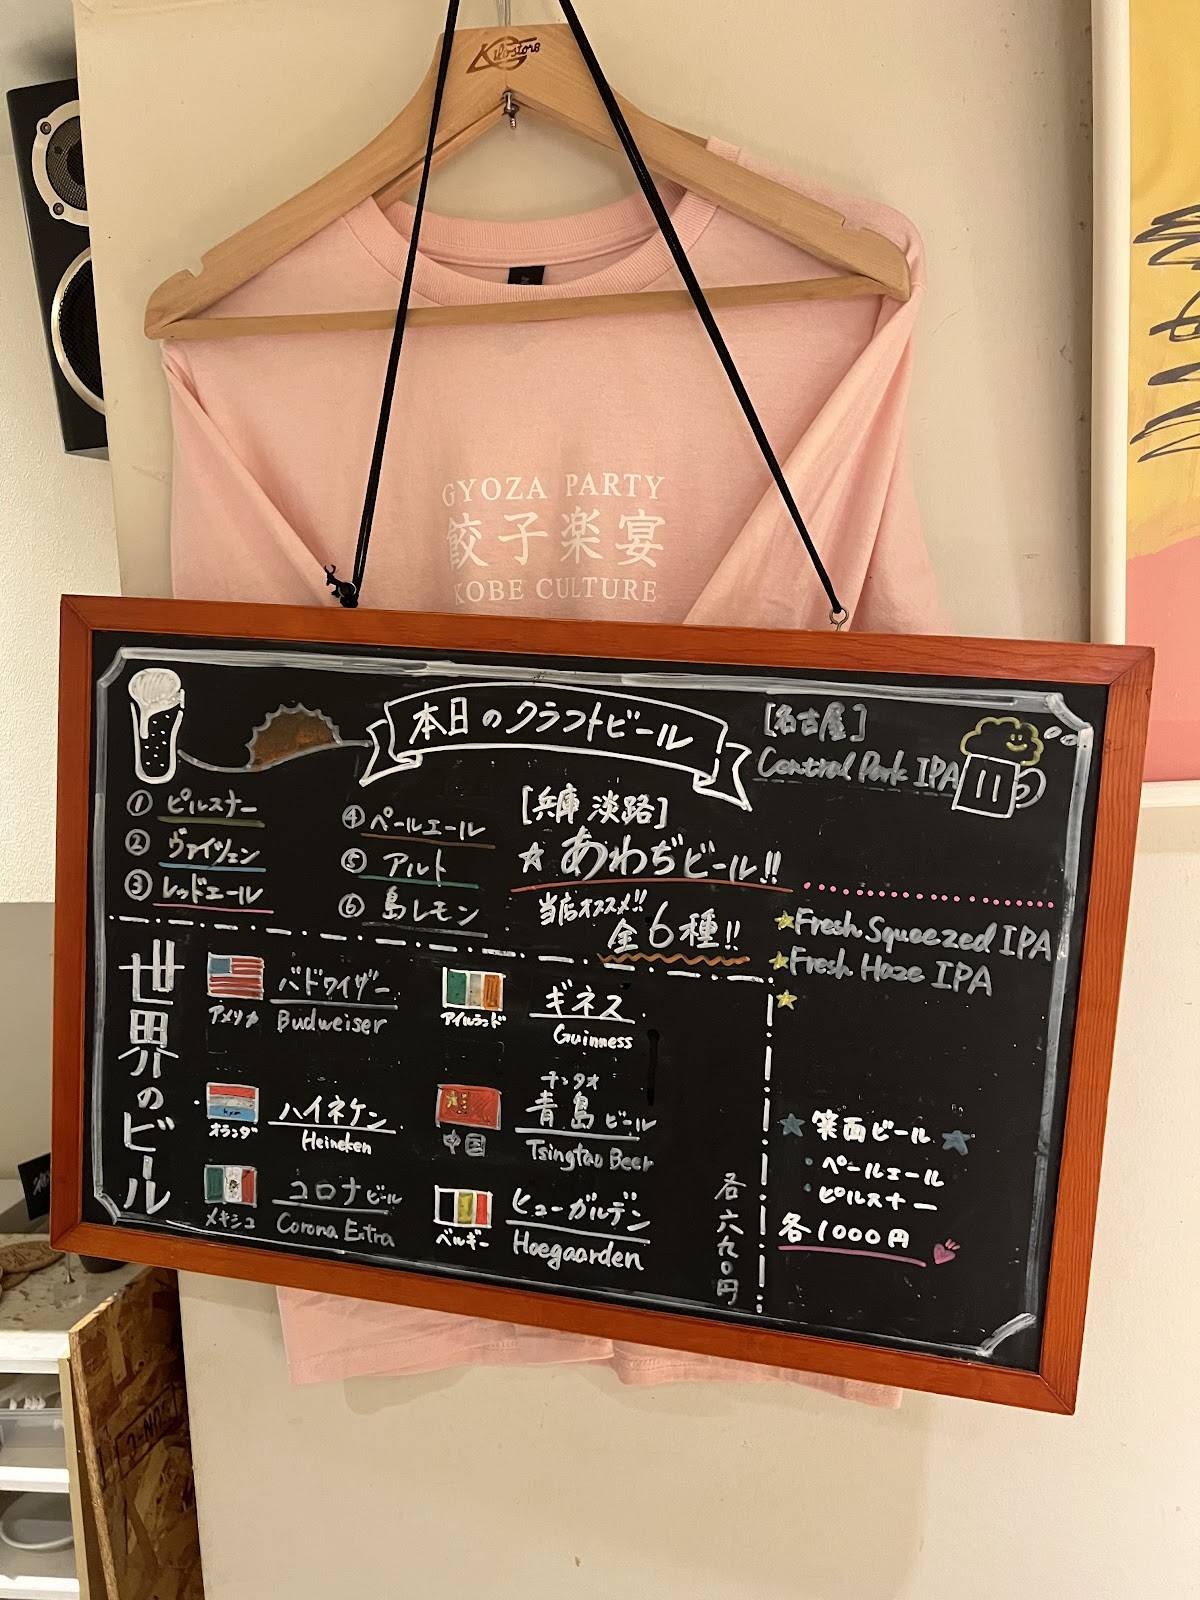 Kilostore
GYOZA PARTY
餃子楽宴
KOBE CULTURE
本日のクラフトビール
① ピルスナー
② ヴァイツェン
③ レッドエール
④ ペールエール
⑤ アルト
⑥ 島レモン
[兵庫 淡路]
☆ あわぢビール!!
当店オススメ!!
全6種!!
[名古屋]
Central Park IPA
★Fresh Squeezed IPA
★Fresh Haze IPA
★
★ 箕面ビール ★
・ペールエール
・ピルスナー
各1000円
世界のビール
アメリカ
バドワイザー
Budweiser
オランダ
ハイネケン
Heineken
メキシコ
コロナビール
Corona Extra
アイルランド
ギネス
Guinness
中国
チンタオ
青島ビール
Tsingtao Beer
ベルギー
ヒューガルデン
Hoegaarden
各六九〇円